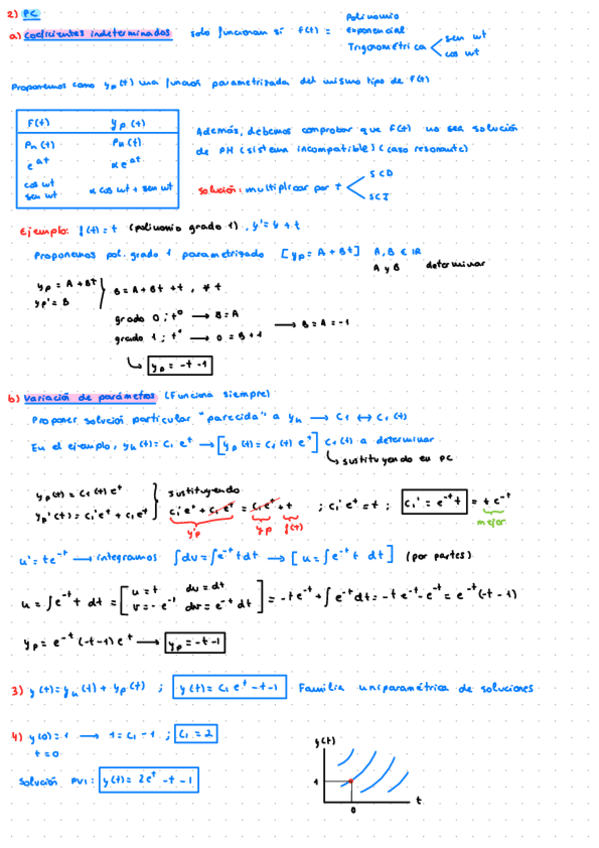 2) PC
a) Coeficientes indeterminados solo funcionan si f(t) = Polinomio
exponencial
Trigonométrica < sen wt
cos wt
Proponemos como yp(t) una función parametrizada del mismo tipo de f(t)
F(t) yp(t)
Pn(t) Pn(t)
e^at αe^at
cos wt
sen wt α cos wt + sen wt
Además, debemos comprobar que F(t) no sea solución
de PH (sistema incompatible) (caso resonante)
solución: multiplicar por t < SCD
SCI
Ejemplo: f(t) = t (polinomio grado 1), y' = y + t
Proponemos pol. grado 1 parametrizado [yp = A + Bt] A, B ∈ IR
A y B determinar
yp = A + Bt
yp' = B } B = A + Bt + t, ∀t
grado 0; t⁰ → B = A
grado 1; t¹ → 0 = B + 1 → B = A = -1
↳ yp = -t - 1
b) Variación de parámetros (Funciona siempre)
Proponer solución particular "parecida" a yh → C1 ↔ C1(t)
En el ejemplo, yh(t) = C1 e^t → [yp(t) = C1(t) e^t] C1(t) a determinar
↳ sustituyendo en PC
yp(t) = C1(t) e^t
yp'(t) = C1' e^t + C1 e^t } sustituyendo
C1' e^t + C1 e^t = C1 e^t + t ; C1' e^t = t ; C1' = e^-t t = t e^-t
y'p yp f(t) mejor
u' = t e^-t → integramos ∫du = ∫e^-t t dt → [u = ∫e^-t t dt] (por partes)
u = ∫e^-t t dt = [u = t du = dt
v = -e^-t dv = e^-t dt] = -t e^-t + ∫e^-t dt = -t e^-t - e^-t = e^-t(-t - 1)
yp = e^-t (-t-1) e^t → yp = -t - 1
3) y(t) = yh(t) + yp(t) ; y(t) = C1 e^t - t - 1 Familia uniparamétrica de soluciones
4) y(0) = 1 → 1 = C1 - 1 ; C1 = 2
t = 0
Solución PVI: y(t) = 2e^t - t - 1
y(t)
1
0
t